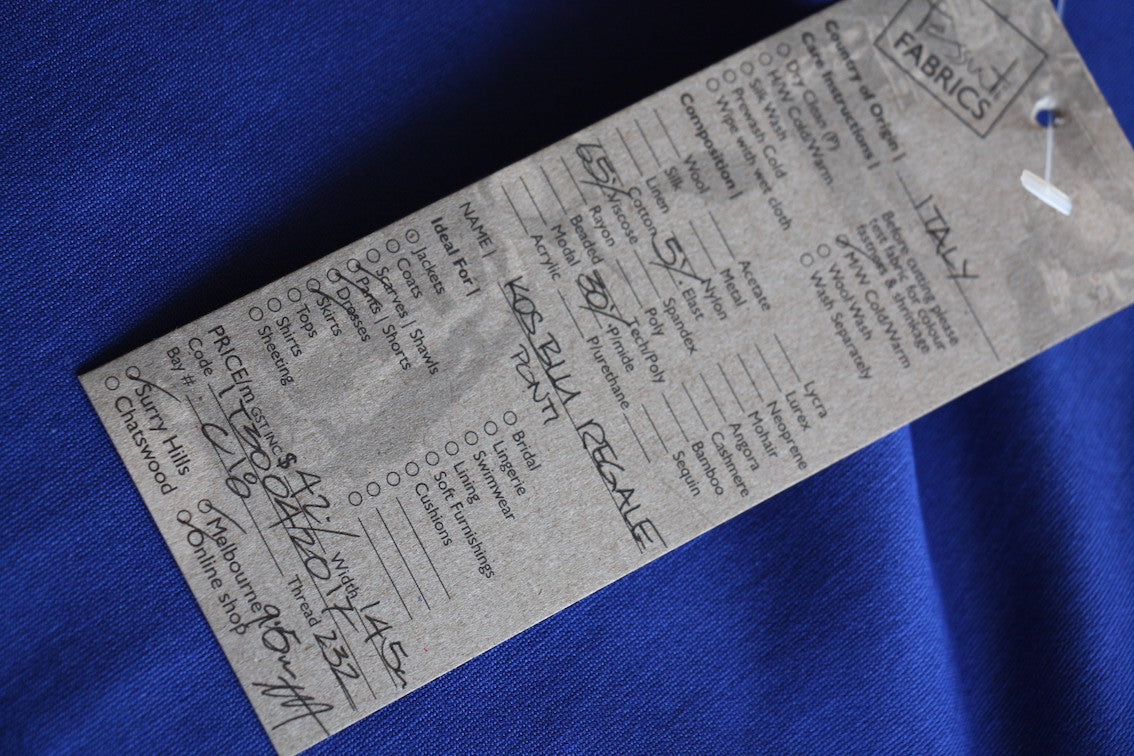 Tessuti
FABRICS
Country of Origin | ITALY
Care Instructions |
Dry Clean (P)
H/W Cold/Warm
Silk Wash
Prewash Cold
Wipe with wet cloth
Before cutting please
test fabric for colour
fastness & shrinkage
M/W Cold/Warm
Wool Wash
Wash Separately
Composition |
Wool
Silk
Linen
Cotton
65% Viscose
Rayon
Beaded
Modal
Acrylic
Acetate
Metal
Nylon
5% Elast
Spandex
Poly
Tech/Poly
30% P/mide
P/urethane
Lycra
Lurex
Neoprene
Mohair
Angora
Cashmere
Bamboo
Sequin
NAME | KOS BLU REGALE
PONTI
Ideal For |
Jackets
Coats
Scarves | Shawls
Pants | Shorts
Dresses
Skirts
Tops
Shirts
Sheeting
Bridal
Lingerie
Swimwear
Lining
Soft Furnishings
Cushions
PRICE/m GST INC $ 42./ Width 145m
Code IT3004/2017 Thread 232
Bay #. C18
Surry Hills
Chatswood
Melbourne 9.5m
Online shop